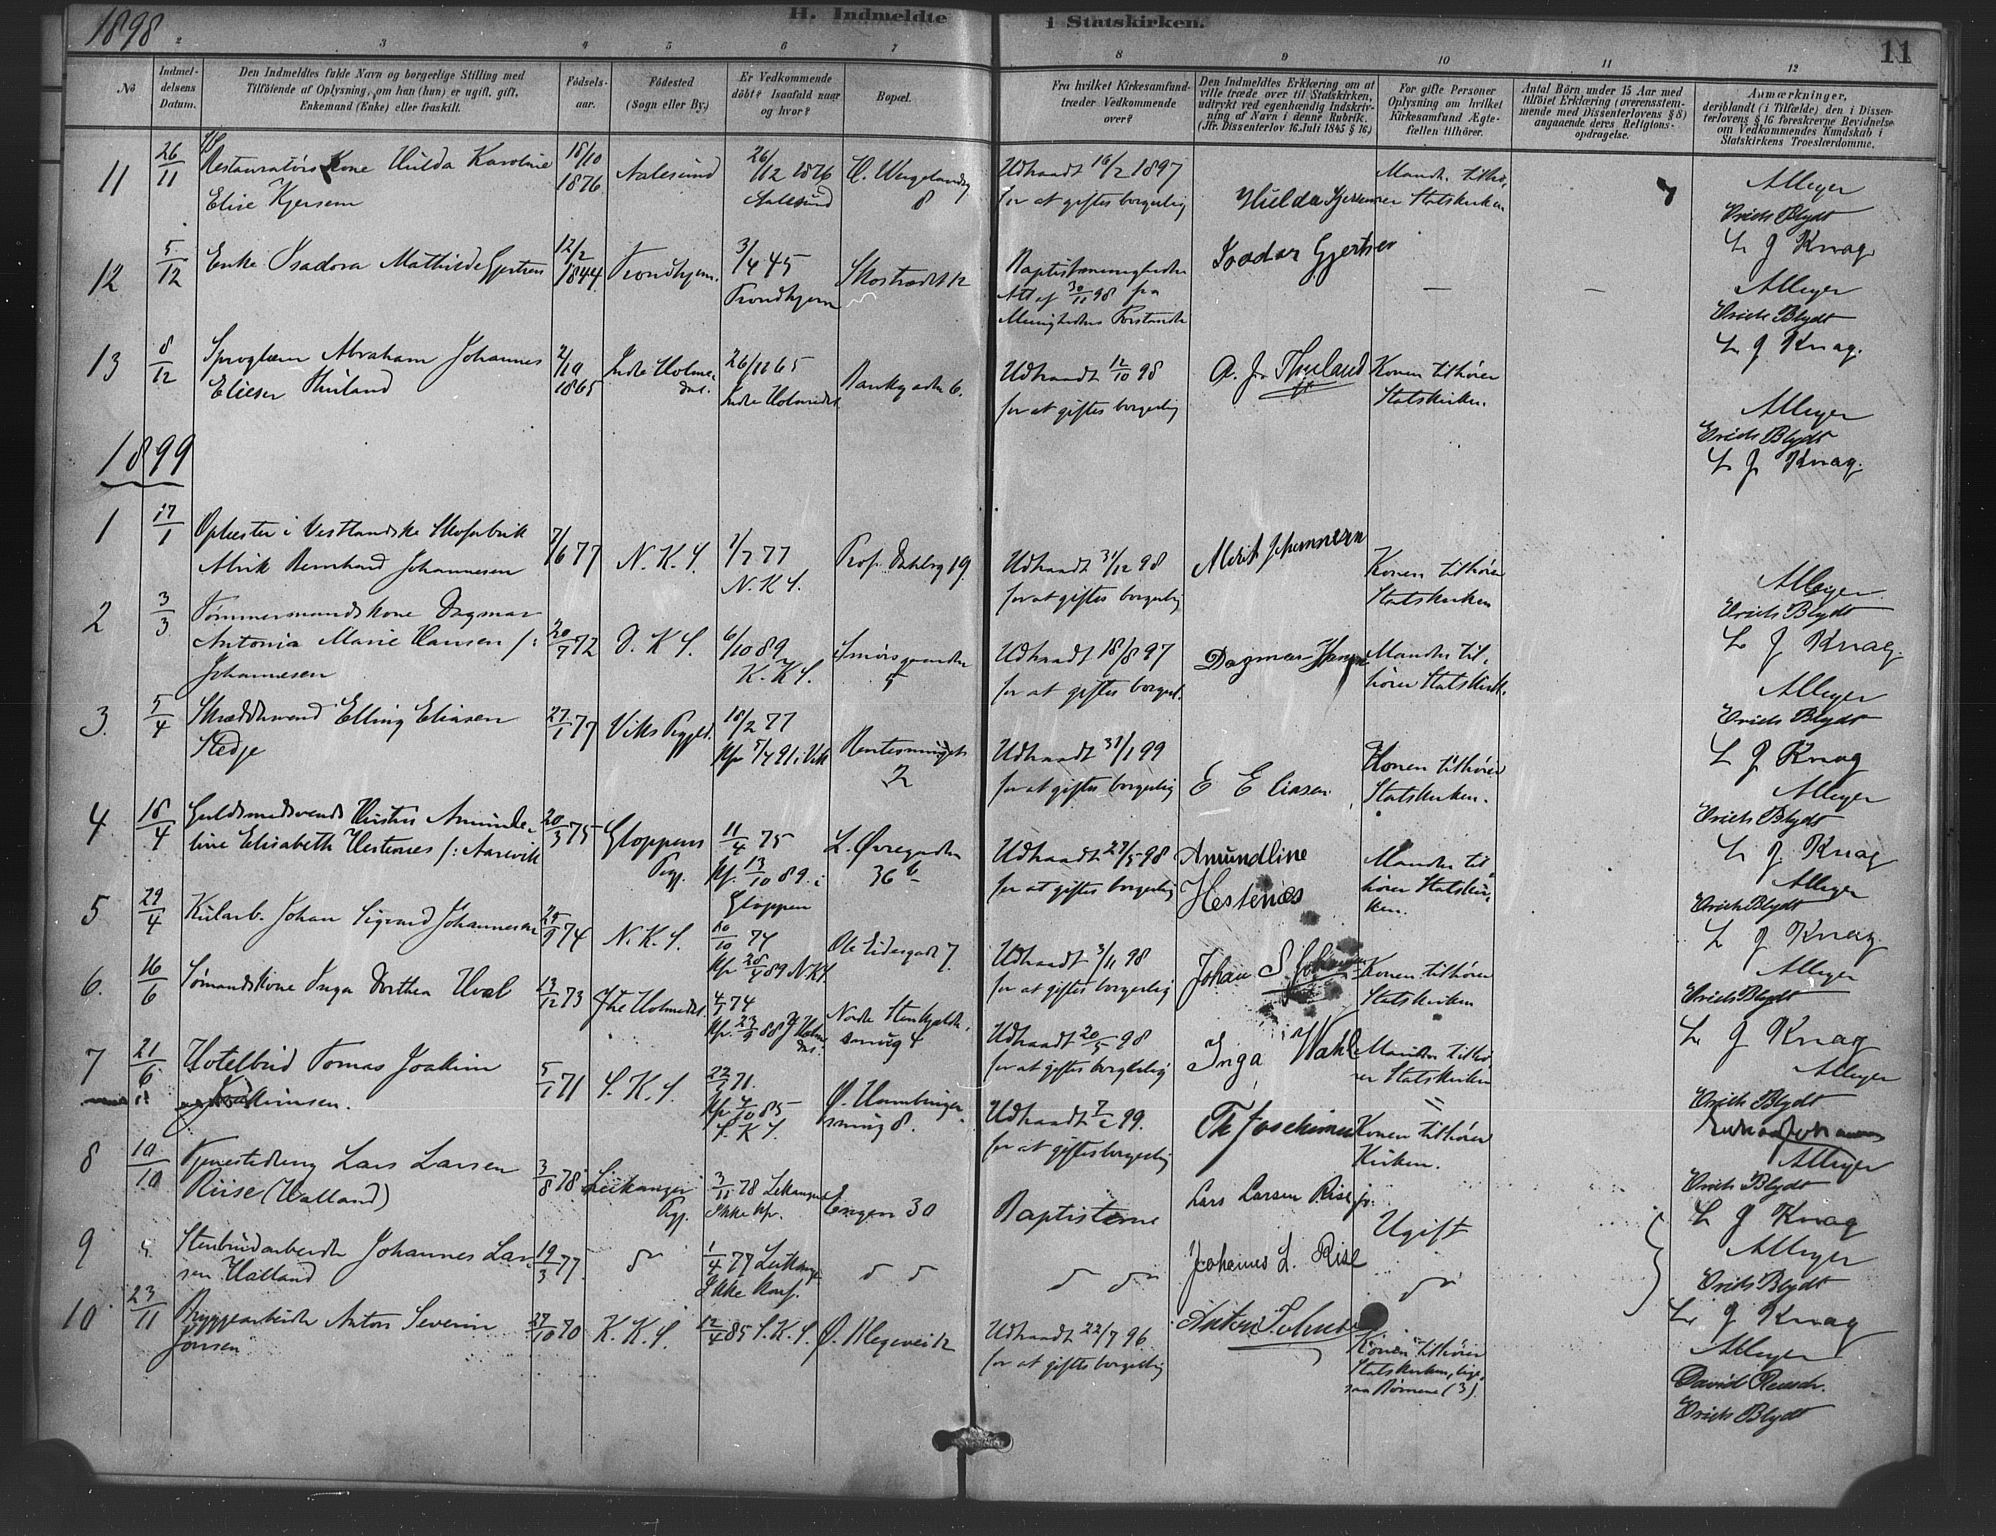 1898
H. Indmeldte i Statskirken.
11
2 3 4 5 6 7 8 9 10 11 12
No
Indmel-
delsens
Datum.
Den Indmeldtes fulde Navn og borgerlige Stilling med
Tilföiende af Oplysning, om han (hun) er ugift, gift,
Enkemand (Enke) eller fraskilt.
Födsels-
aar.
Födested
(Sogn eller By.)
Er Vedkommende
döbt? Isaafald naar
og hvor?
Bopæl.
Fra hvilket Kirkesamfund
træder Vedkommende
over?
Den Indmeldtes Erklæring om at
ville træde over til Statskirken,
udtrykt ved egenhændig Indskriv-
ning af Navn i denne Rubrik.
(Jfr. Dissenterlov 16. Juli 1845 § 16.)
For gifte Personer
Oplysning om hvilket
Kirkesamfund Ægte-
fællen tilhörer.
Antal Börn under 15 Aar med
tilföiet Erklæring (overensstem-
mende med Dissenterlovens § 8)
angaaende deres Religions-
opdragelse.
Anmærkninger,
deriblandt (i Tilfælde) den i Dissen-
terlovens § 16 foreskrevne Bevidnelse
om Vedkommendes Kundskab i
Statskirkens Troeslærdomme.
11
26/11
Restauratørs Kone Hilda Karoline
Elise Kjersem
18/10
1876
Aalesund
26/12 1876
Aalesund
H. Wergelandsg
8
Udtraadt 16/2 1897
for at giftes borgerlig
Hulda Kjersem
Manden tilhø-
rer Statskirken
Alleyer
Erich Blydt
L J Knag
12
5/12
Enke Isadora Mathilde Gjertsen
12/2
1844
Trondhjem.
3/4 45
Trondhjem
Skostrædet 12
Baptistmenigheden
Att af 30/11 98 fra
Menighedens Forstander
Isadora Gjertsen
—
—
Alleyer
Erich Blydt
L J Knag.
13
8/12
Sproglærer Abraham Johannes
Elieser Thuland
2/10
1865
Indre Holme-
dal.
26/11 65
Indre Holmedal
Bankgaden 6.
Udtraadt 12/10 98
for at giftes borgerlig
A. J. Thuland
Konen tilhører
Statskirken.
Alleyer
Erich Blydt
L J Knag.
1899
1
17/1
Oplæster i Vestlandske Skofabrik
Alrik Bernhard Johannesen
7/6 77
N. K. S.
1/7 77
N. K. S.
Prof. Dahlsg 19.
Udtraadt 31/12 98
for at giftes borgerlig
Alrik Johannesen
Konen tilhører
Statskirken
Alleyer
Erich Blydt
L J Knag.
2
3/3
Tømmermandskone Dagmar
Antonia Marie Hansen /:
Johannesen
20/7 72
D. K. S.
6/10 89
K. K. S.
Smørsgaarden
5
Udtraadt 18/8 97
for at giftes borgerl.
Dagmar Hansen
Manden til-
hører Statskirk.
Alleyer
Erich Blydt
L J Knag
3.
5/4
Skræddersvend Elling Eliasen
Stedje
27/1 77
Viks Prgjeld.
18/2 77
Kf. 5/4 91 i Vik
Rentesmuget
2
Udtraadt 31/1 99
for at giftes borgerlig
E Eliasen
Konen tilhører
Statskirken.
Alleyer
Erich Blydt
L J Knag
4
18/4
Guldsmedsvends Hustru Amunde-
line Elisabeth Hestenes /: Aarevik
20/3 75
Gloppens
Prgj.
11/4 75
Kf. 13/10 89. i
Gloppen
L. Øvregaden
36 b
Udtraadt 27/5 98
for at giftes borgerlig
Amundline
Hestenes
Manden til
hører Statskir-
ken.
Alleyer
Erich Blydt
L J Knag
5
29/4
Kularb. Johan Sigvard Johannesen
25/9 74
N. K. S.
20/10 74
Kf. 28/4 89 N.K.S.
Ole Irgensgade 7.
Udtraadt 3/11 98
for at giftes borgerlig
Johan S Johannesen
Konen tilhører
Statskirken
Alleyer
Erich Blydt
L J Knag
6.
16/6
Sømandskone Inga Dorthea Hval
13/12 73
Ytre Holmedal.
4/1 74
Kf. 23/9 88 Y Holme
dal.
Nordre Stenkjælder-
smug 4
Udtraadt 20/5 98
for at giftes borgerlig
Inga Wahl
Manden tilhø-
rer Statskirken
Alleyer
Erich Blydt
7
21/6
Hotelbud Tomas Joakim
Joakimsen.
5/1 71
S. K. S.
22/1 71.
Kf. 4/10 85
S. K. S.
Ø. Hamburger-
smug 8.
Udtraadt 7/2 99.
for at giftes borgerlig
Th Joachimsen
Konen tilhører
Kirken.
Alleyer
Erich Blydt
L J Knag
8
10/10
Tjenestedreng Lars Larsen
Riise (Halland)
3/8 78
Leikanger
Prgj.
3/11 78 Leikanger
Ikke kf.
Engen 30
Baptisterne
Lars Larsen Rise jr.
Ugift
Alleyer
Erich Blydt
9
Stenbrudarbeider Johannes Lar-
sen Halland
19/3 77.
do
1/4 77 Leikanger
Ikke konf.
do do
do do
Johannes L. Rise
do
L J Knag
10
23/11
Bryggearbeider Anton Severin
Jonsen
27/10 70
K. K. S.
12/4 85 S. K. S.
Ø. Blegevei 12
Udtraadt 22/7 96
for at giftes borgerlig
Anton Johnsen
Konen tilhører
Statskirken, lige-
saa Børnene (3).
Alleyer
David Reusch.
Erich Blydt